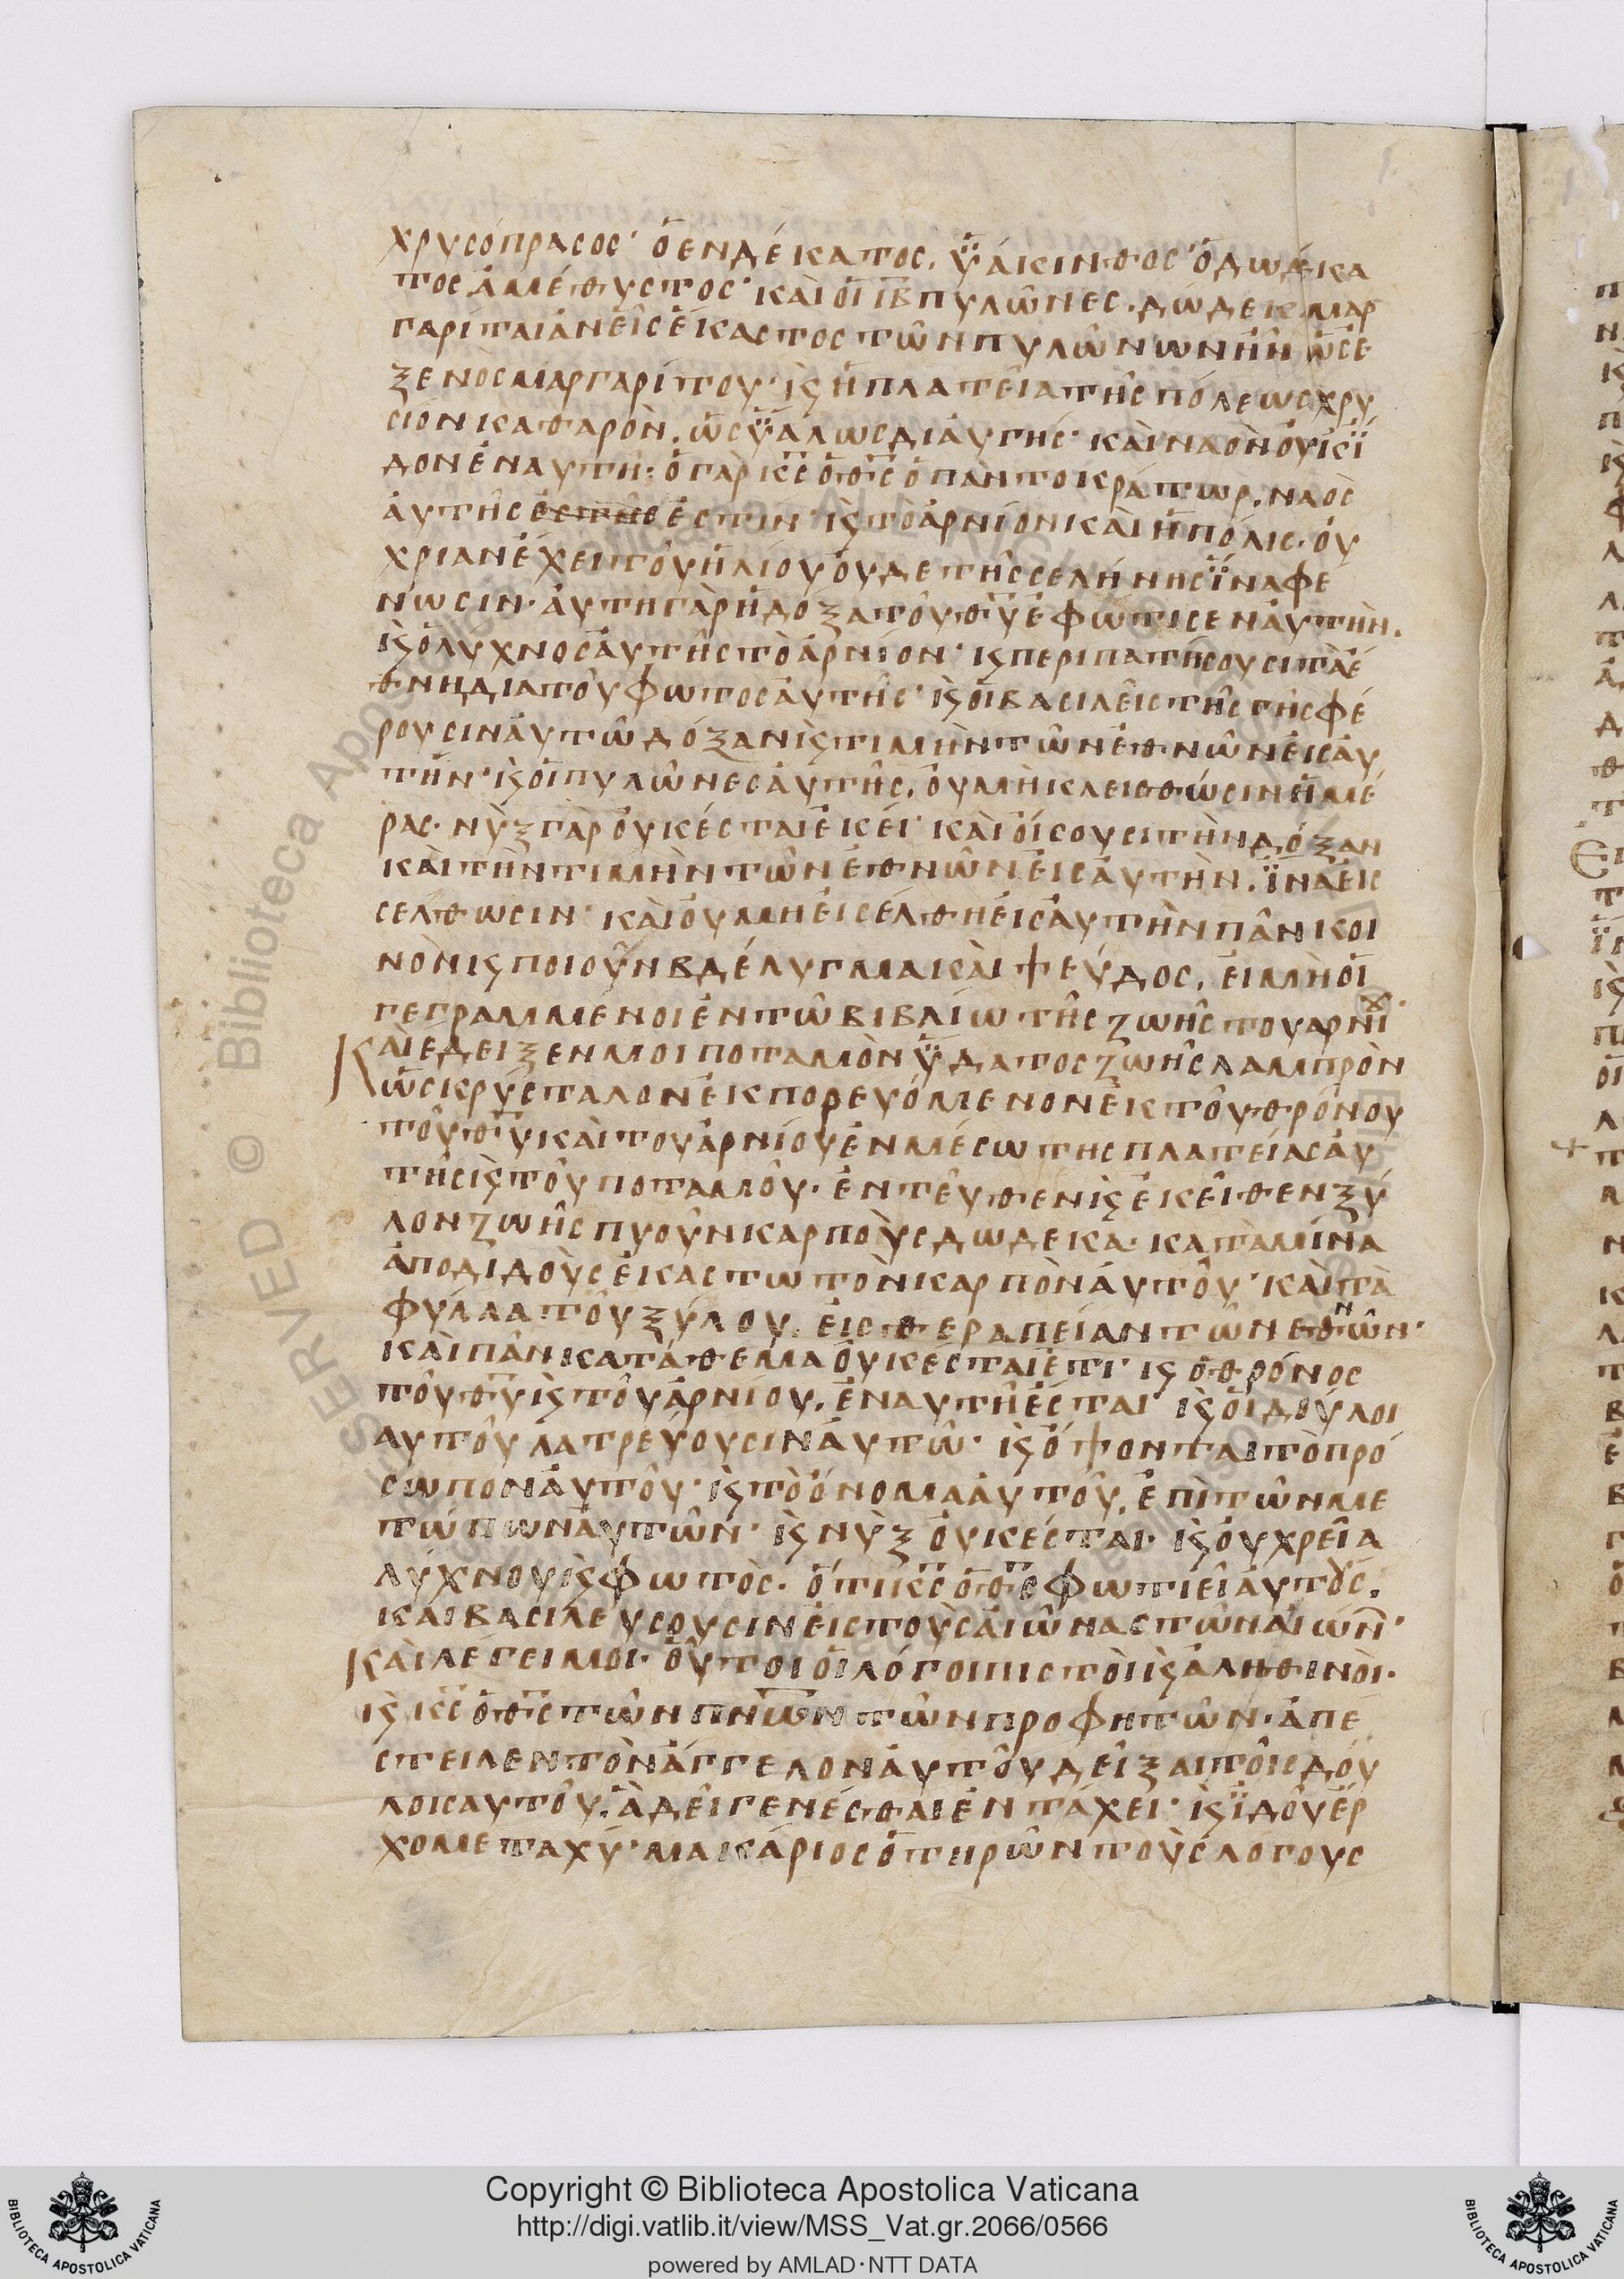 χρυσόπρασος· ὁ ἑνδέκατος. ὑάκινθος· ὁ δωδέκα
τος ἀμέθυστος· καὶ οἱ ιβ πυλῶνες. δώδεκ μαρ
γαρίται ἀνεῖς ἕκαστος τῶν πυλώνων ἦν ὡς ἐ
ξ ἑνὸς μαργαρίτου· κς ἡ πλατεῖα τῆς πόλεως χρυ
σίον καθαρὸν. ὡς ὕαλως διάυγής· καὶ ναὸν οὐκ ΐ
δον ἐν αυτῆ· ὁ γὰρ κς ὁ θς ὁ παντοκράτωρ. ναὸς
ἀυτῆς ἐστῆς ἐστιν· κς τὸ ἀρνίον καὶ ἡ πόλις. ὀυ
χρίαν ἔχει τοῦ ἡλίου οὐδε τῆς σελήνης ΐνα φε
νωσιν· ἀυτη γὰρ ἡ δόξα τοῦ θυ ἐφώτισεν ἀυτην.
κς ὁ λυχνος ἀυτῆς τὸ ἀρνίον· κς περιπατήσουσι τὰ ἔ
θνη δια τοῦ φωτος ἀυτῆς· κς οἱ βασιλεῖς τῆς γῆς φέ
ρουσιν ἀυτῶ δόξαν κς τιμὴν τῶν ἐθνῶν εἰς ἀυ
τήν· κς οἱ πυλῶνες ἀυτῆς. ὀυ μὴ κλεισθώσιν ἡμέ
ρας· νὺξ γὰρ οὐκ έσται ἐκεί· καὶ ὀίσουσι τὴν δόξαν
καὶ τὴν τιμὴν τῶν ἐθνῶν εἰς ἀυτὴν. ΐνα εἰς
σέλθωσιν· καὶ ὀυ μη εἰσέλθη εἰς ἀυτὴν πᾶν κοι
νὸν κς ποιοῦν βδέλυγμα καὶ ψεύδος. εἰ μὴ οἱ
γεγραμμένοι ἐν τῶ βιβλίω τῆς ζωῆς του αρνί
Καὶ ἔδειξεν μοι ποταμὸν ὕδατος ζωῆς λαμπρὸν
ὡς κρύσταλον ἐκπορευόμενον ἐκ τοῦ θρόνου
τοῦ θυ καὶ του ἀρνίου ἐν μέσω της πλατείας ἀυ
τῆς κς τοῦ ποταμοῦ· ἐντεῦθεν κς ἐκεῖθεν ξύ
λον ζωῆς πυοῦν καρποὺς δωδεκα· κατὰ μίνα
ἀποδιδοὺς ἑκαστω τὸν καρπὸν ἀυτοῦ· καὶ τὰ
φύλλα τοῦ ξύλου. εἰς θεραπείαν τῶν εθνῶν·
καὶ πᾶν κατάθεμα οὐκ έσται ἔτι· κς ὁ θρόνος
τοῦ θυ κς τοῦ ἀρνίου. ἐν αυτῆ ἔσται· κς οἱ δοῦλοι
αυτοῦ λατρεύουσιν ἀυτῶ· κς ὄψονται τὸ πρό
σωπον ἀυτοῦ· κς τὸ ὄνομα ἀυτοῦ. ἐπὶ τῶν με
τώπων ἀυτῶν· κς νὺξ οὐκ έσται· κς ὀυ χρεῖα
λύχνου κς φωτὸς. ὅτι κς ὁ θς φωτιεῖ ἀυτοὺς.
καὶ βασιλευσουσιν εἰς τοὺς ἀιῶνας τῶν αἰών·
Καὶ λέγει μοι· οὗτοι οἱ λόγοι πιστοὶ κς ἀληθινοὶ.
κς κς ὁ θς τῶν πνων τῶν προφητῶν. ἀπέ
στειλεν τὸν ἄγγελον ἀυτοῦ δεῖξαι τοῖς δού
λοις αυτοῦ. ἃ δεῖ γενέσθαι ἐν τάχει· κς ϊδοῦ ἔρ
χομε ταχύ· μακάριος ὁ τηρῶν τοὺς λογους
Copyright © Biblioteca Apostolica Vaticana
http://digi.vatlib.it/view/MSS_Vat.gr.2066/0566
powered by AMLAD·NTT DATA